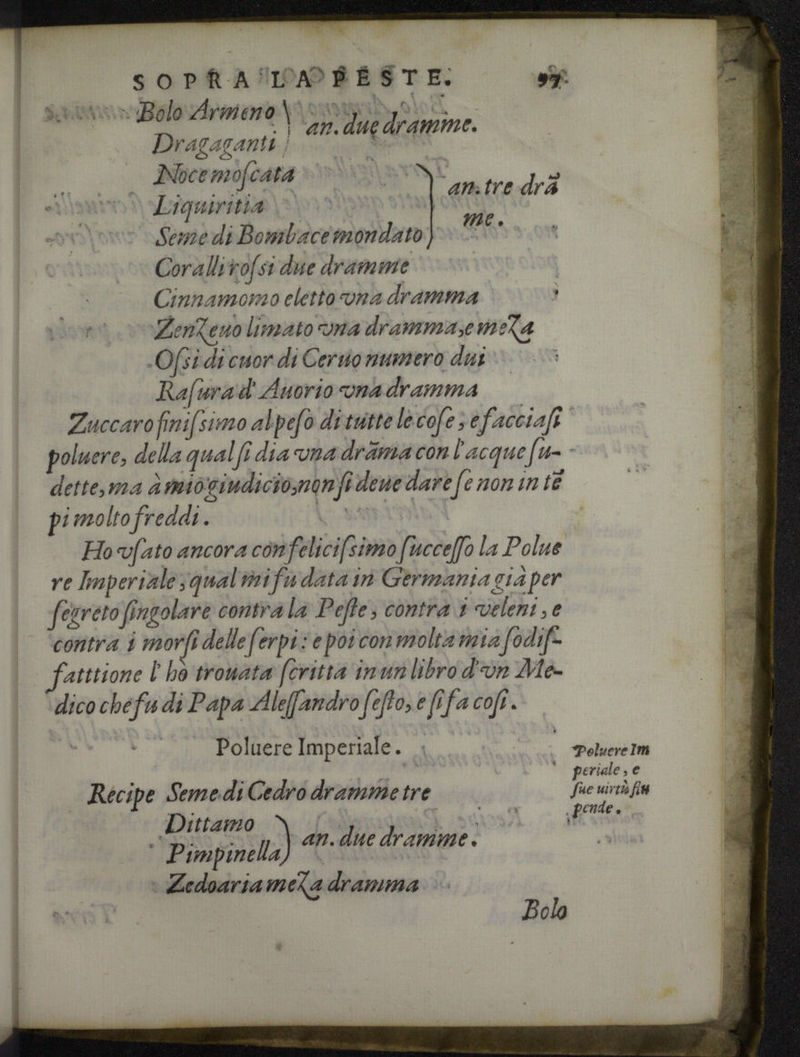 SOPRA LA PESTE. 97.
Bolo Armeno
Dragaganti } an. due dramme.
Noce moſcata
Liquiritia } an. tre drã
Seme di Bombace mondato me.
Coralli roſsi due dramme
Cinnamomo eletto vna dramma
Zenzeuo limato vna dramma, e meza
Oſsi di cuor di Ceruo numero dui
Raſura d'Auorio vna dramma
Zuccaro finiſsimo al peſo di tutte le coſe, e facciaſi
poluere, della qual ſi dia vna drãma con l'acque ſu-
dette, ma à mio giudicio, non ſi deue dare ſe non in tẽ
pi molto freddi.
Ho vſato ancora con feliciſsimo ſucceſſo la Polue
re Imperiale, qual mi fu data in Germania già per
ſegreto ſingolare contra la Peſte, contra i veleni, e
contra i morſi delle ſerpi: e poi con molta mia ſodiſ-
fatttione l'hò trouata ſcritta in un libro d'vn Me-
dico che fu di Papa Aleſſandro ſeſto, e ſi fa coſi.
Poluere Imperiale.
Poluere Im
periale, e
ſue uirtù ſtu
pende.
Recipe Seme di Cedro dramme tre
Dittamo
Pimpinella } an. due dramme.
Zedoaria meza dramma
Bolo